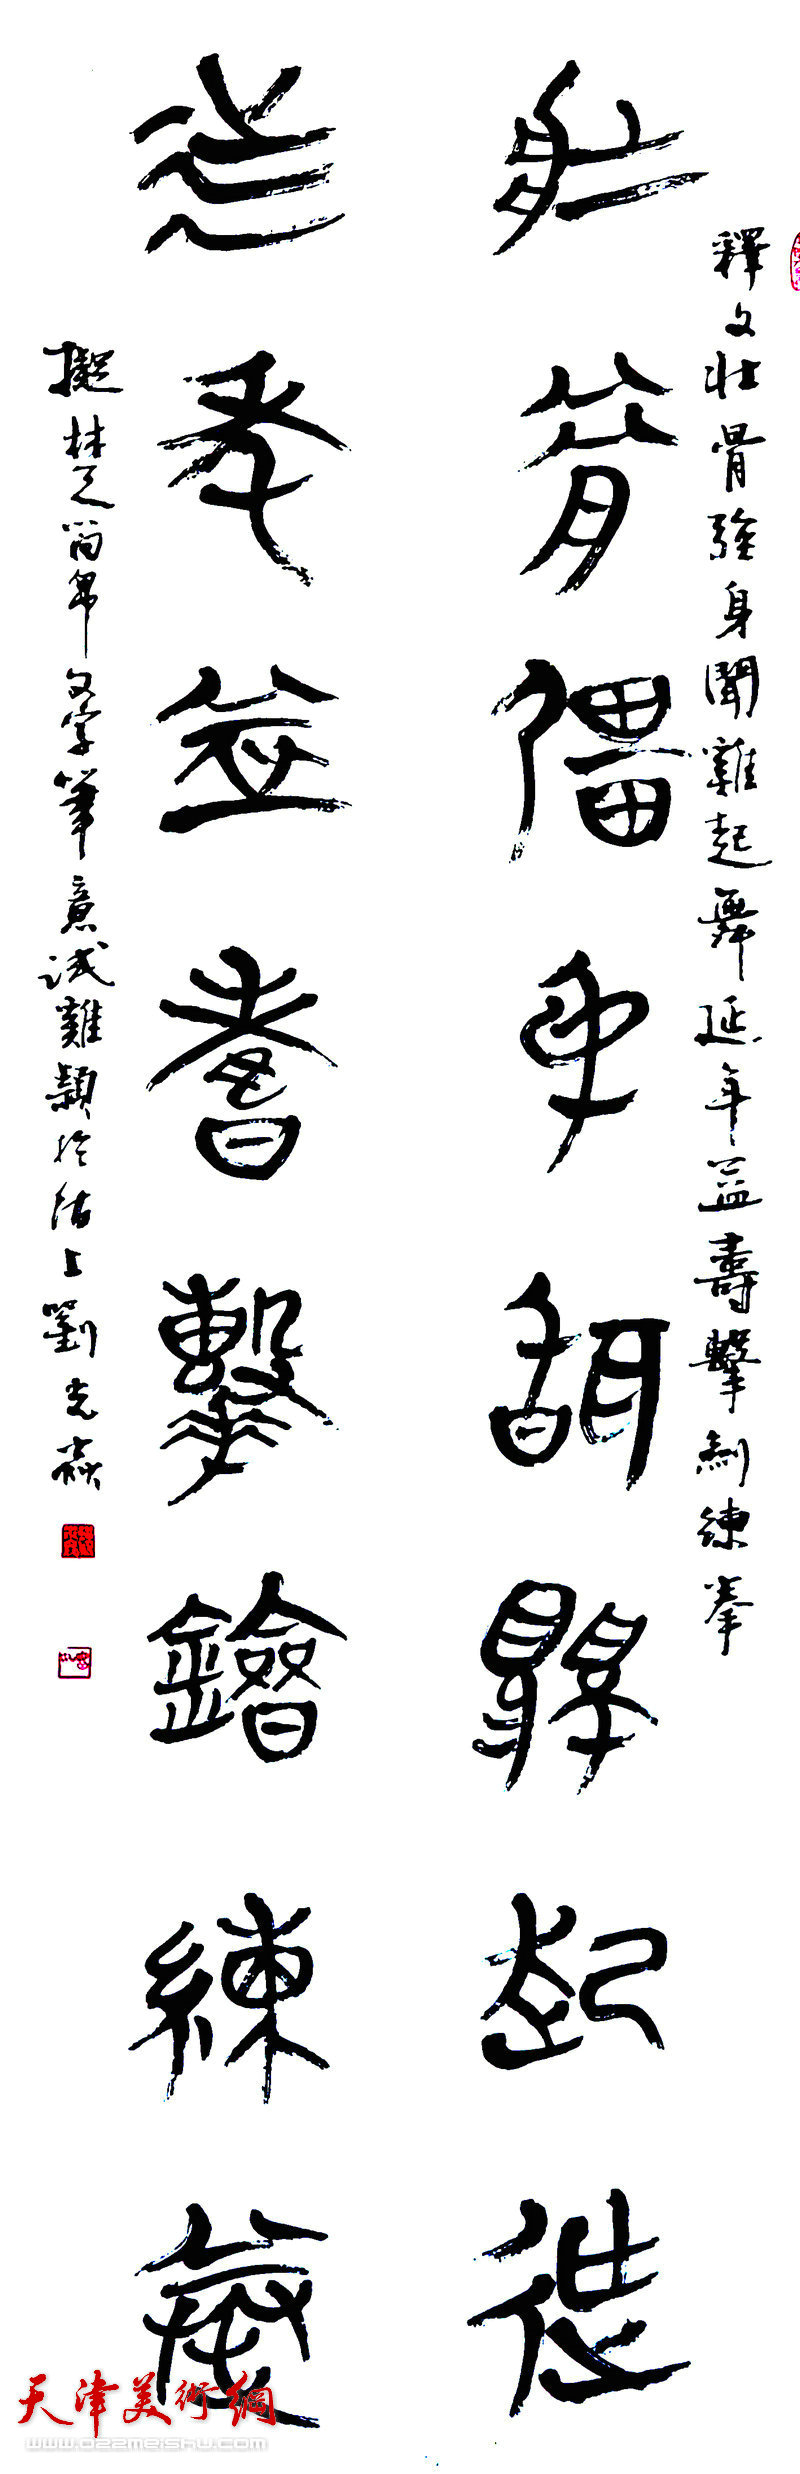 釋文壯骨強身聞雞起舞延年益壽擊劍練拳
壯骨強身聞雞起舞
延年益壽擊劍練拳
擬楚簡帛文字筆意誠難類於沽上劉克
天津美術網
www.022meishu.com